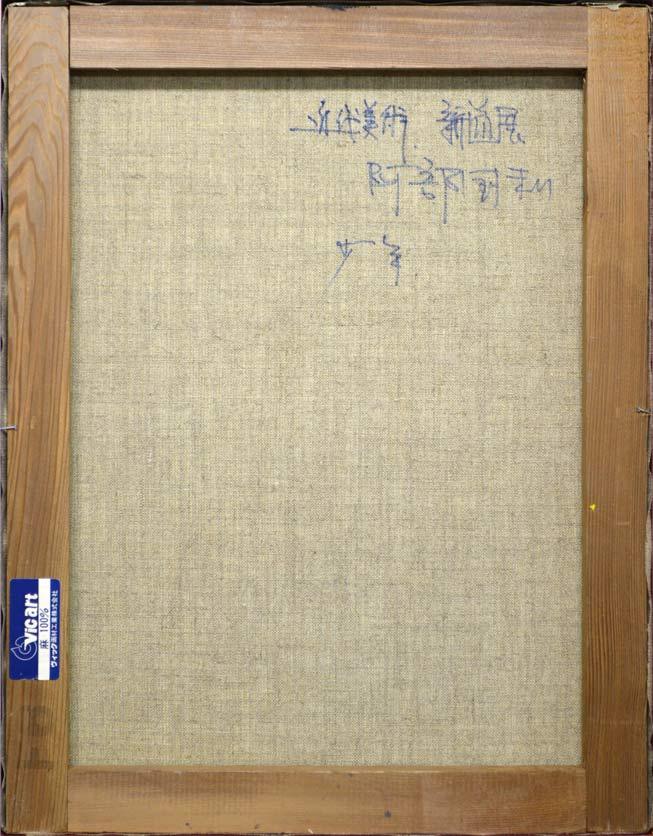 近代美術 新道展
阿部
少年
Vicart
麻 100%
ヴィック画材工業株式会社